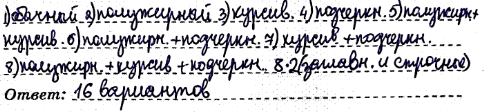 1)обычный 2)полужирный 3)курсив. 4)подчеркн. 5)полужирн+
курсив. 6)полужирн.+подчеркн. 7) курсив +подчеркн.
8)полужирн.+курсив+подчеркн. 8·2(заглавн. и строчные)
Ответ: 16 вариантов